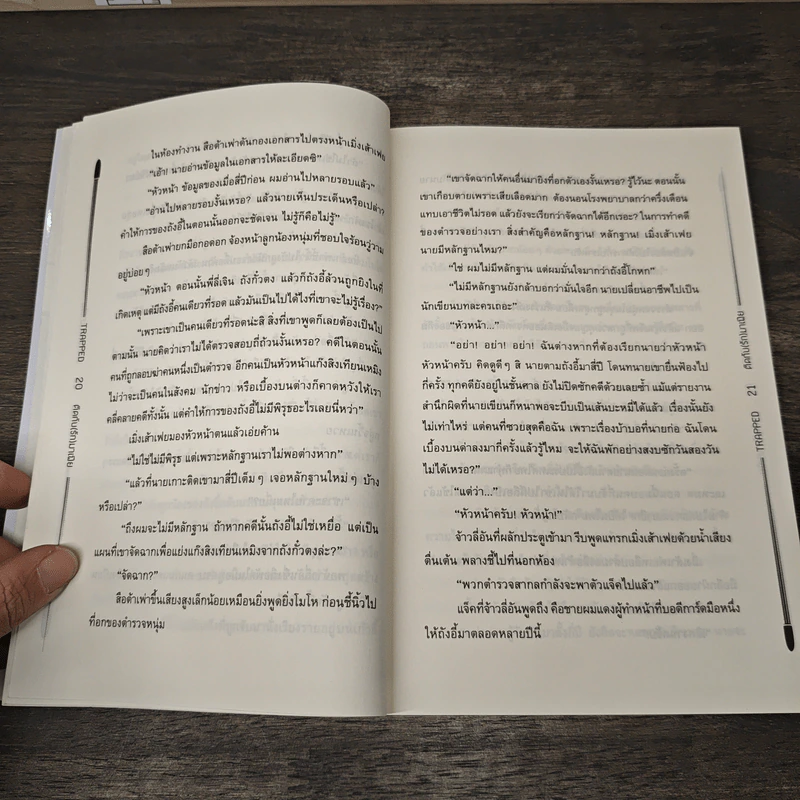 ในห้องทำงาน สือต้าเฟาดันกองเอกสารไปตรงหน้าเมิ่งเส้าเฟย
“เอ้า! นายอ่านข้อมูลในเอกสารให้ละเอียดซิ”
“หัวหน้า ข้อมูลของเมื่อสี่ปีก่อน ผมอ่านไปหลายรอบแล้ว”
“อ่านไปหลายรอบงั้นเหรอ? แล้วนายเห็นประเด็นหรือเปล่า?
คำให้การของถังอี้ในตอนนั้นออกจะชัดเจน ไม่รู้ก็คือไม่รู้”
สือต้าเฟายกมือกอดอก จ้องหน้าลูกน้องหนุ่มที่ชอบใจร้อนรู่วาม
อยู่บ่อยๆ
“หัวหน้า ตอนนั้นพี่ลี่เจิน ถังกั๋วตง แล้วก็ถังอี้ล้วนถูกยิงในที่
เกิดเหตุ แต่มีถังอี้คนเดียวที่รอด แล้วมันเป็นไปได้ไงที่เขาจะไม่รู้เรื่อง?”
“เพราะเขาเป็นคนเดียวที่รอดน่ะสิ สิ่งที่เขาพูดก็เลยต้องเป็นไป
ตามนั้น นายคิดว่าเราไม่ได้ตรวจสอบถี่ถ้วนงั้นเหรอ? คดีในตอนนั้น
คนที่ถูกลอบฆ่าคนหนึ่งเป็นตำรวจ อีกคนเป็นหัวหน้าแก๊งสิงเทียนเหมิง
ไม่ว่าจะเป็นคนในสังคม นักข่าว หรือเบื้องบนต่างก็คาดหวังให้เรา
คลี่คลายคดีทั้งนั้น แต่คำให้การของถังอี้ไม่มีพิรุธอะไรเลยนี่หว่า”
เมิ่งเส้าเฟยมองหัวหน้าตนแล้วเอ่ยค้าน
“ไม่ใช่ไม่มีพิรุธ แต่เพราะหลักฐานเราไม่พอต่างหาก”
“แล้วที่นายเกาะติดเขามาสี่ปีเต็มๆ เจอหลักฐานใหม่ๆ บ้าง
หรือเปล่า?”
“ถึงผมจะไม่มีหลักฐาน ถ้าหากคดีนั้นถังอี้ไม่ใช่เหยื่อ แต่เป็น
แผนที่เขาจัดฉากเพื่อแย่งแก๊งสิงเทียนเหมิงจากถังกั๋วตงล่ะ?”
“จัดฉาก?”
สือต้าเฟาขึ้นเสียงสูงเล็กน้อยเหมือนยิ่งพูดยิ่งโมโห ก่อนชี้นิ้วไป
ที่อกของตำรวจหนุ่ม
TRAPPED 20 ติดกับ(รัก)มาเฟีย
“เขาจัดฉากให้คนอื่นมายิงที่อกตัวเองงั้นเหรอ? รู้ไว้นะ ตอนนั้น
เขาเกือบตายเพราะเสียเลือดมาก ต้องนอนโรงพยาบาลกว่าครึ่งเดือน
แทบเอาชีวิตไม่รอด แล้วยังจะเรียกว่าจัดฉากได้อีกเรอะ? ในการทำคดี
ของตำรวจอย่างเรา สิ่งสำคัญคือหลักฐาน! หลักฐาน! เมิ่งเส้าเฟย
นายมีหลักฐานไหม?”
“ใช่ ผมไม่มีหลักฐาน แต่ผมมั่นใจมากว่าถังอี้โกหก”
“ไม่มีหลักฐานยังกล้าบอกว่ามั่นใจอีก นายเปลี่ยนอาชีพไปเป็น
นักเขียนบทละครเถอะ”
“หัวหน้า...”
“อย่า! อย่า! อย่า! ฉันต่างหากที่ต้องเรียกนายว่าหัวหน้า
หัวหน้าครับ คิดดูดีๆ สิ นายตามถังอี้มาสี่ปี โดนทนายเขายื่นฟ้องไป
กี่ครั้ง ทุกคดียังอยู่ในชั้นศาล ยังไม่ปิดซักคดีด้วยเลยซ้ำ แม้แต่รายงาน
สำนึกผิดที่นายเขียนก็หนาพอจะบีบเป็นเส้นบะหมี่ได้แล้ว เรื่องนั้นยัง
ไม่เท่าไหร่ แต่คนที่ซวยสุดคือฉัน เพราะเรื่องบ้าบอที่นายก่อ ฉันโดน
เบื้องบนด่าลงมากี่ครั้งแล้วรู้ไหม จะให้ฉันพักอย่างสงบซักวันสองวัน
ไม่ได้เหรอ?”
“แต่ว่า...”
“หัวหน้าครับ! หัวหน้า!”
จ้าวลี่อันที่ผลักประตูเข้ามา รีบพูดแทรกเมิ่งเส้าเฟยด้วยน้ำเสียง
ตื่นเต้น พลางชี้ไปที่นอกห้อง
“พวกตำรวจสากลกำลังจะพาตัวแจ็คไปแล้ว”
แจ็คที่จ้าวลี่อันพูดถึง คือชายผมแดงผู้ทำหน้าที่บอดีการ์ดมือหนึ่ง
ให้ถังอี้มาตลอดหลายปีนี้
TRAPPED 21 ติดกับ(รัก)มาเฟีย